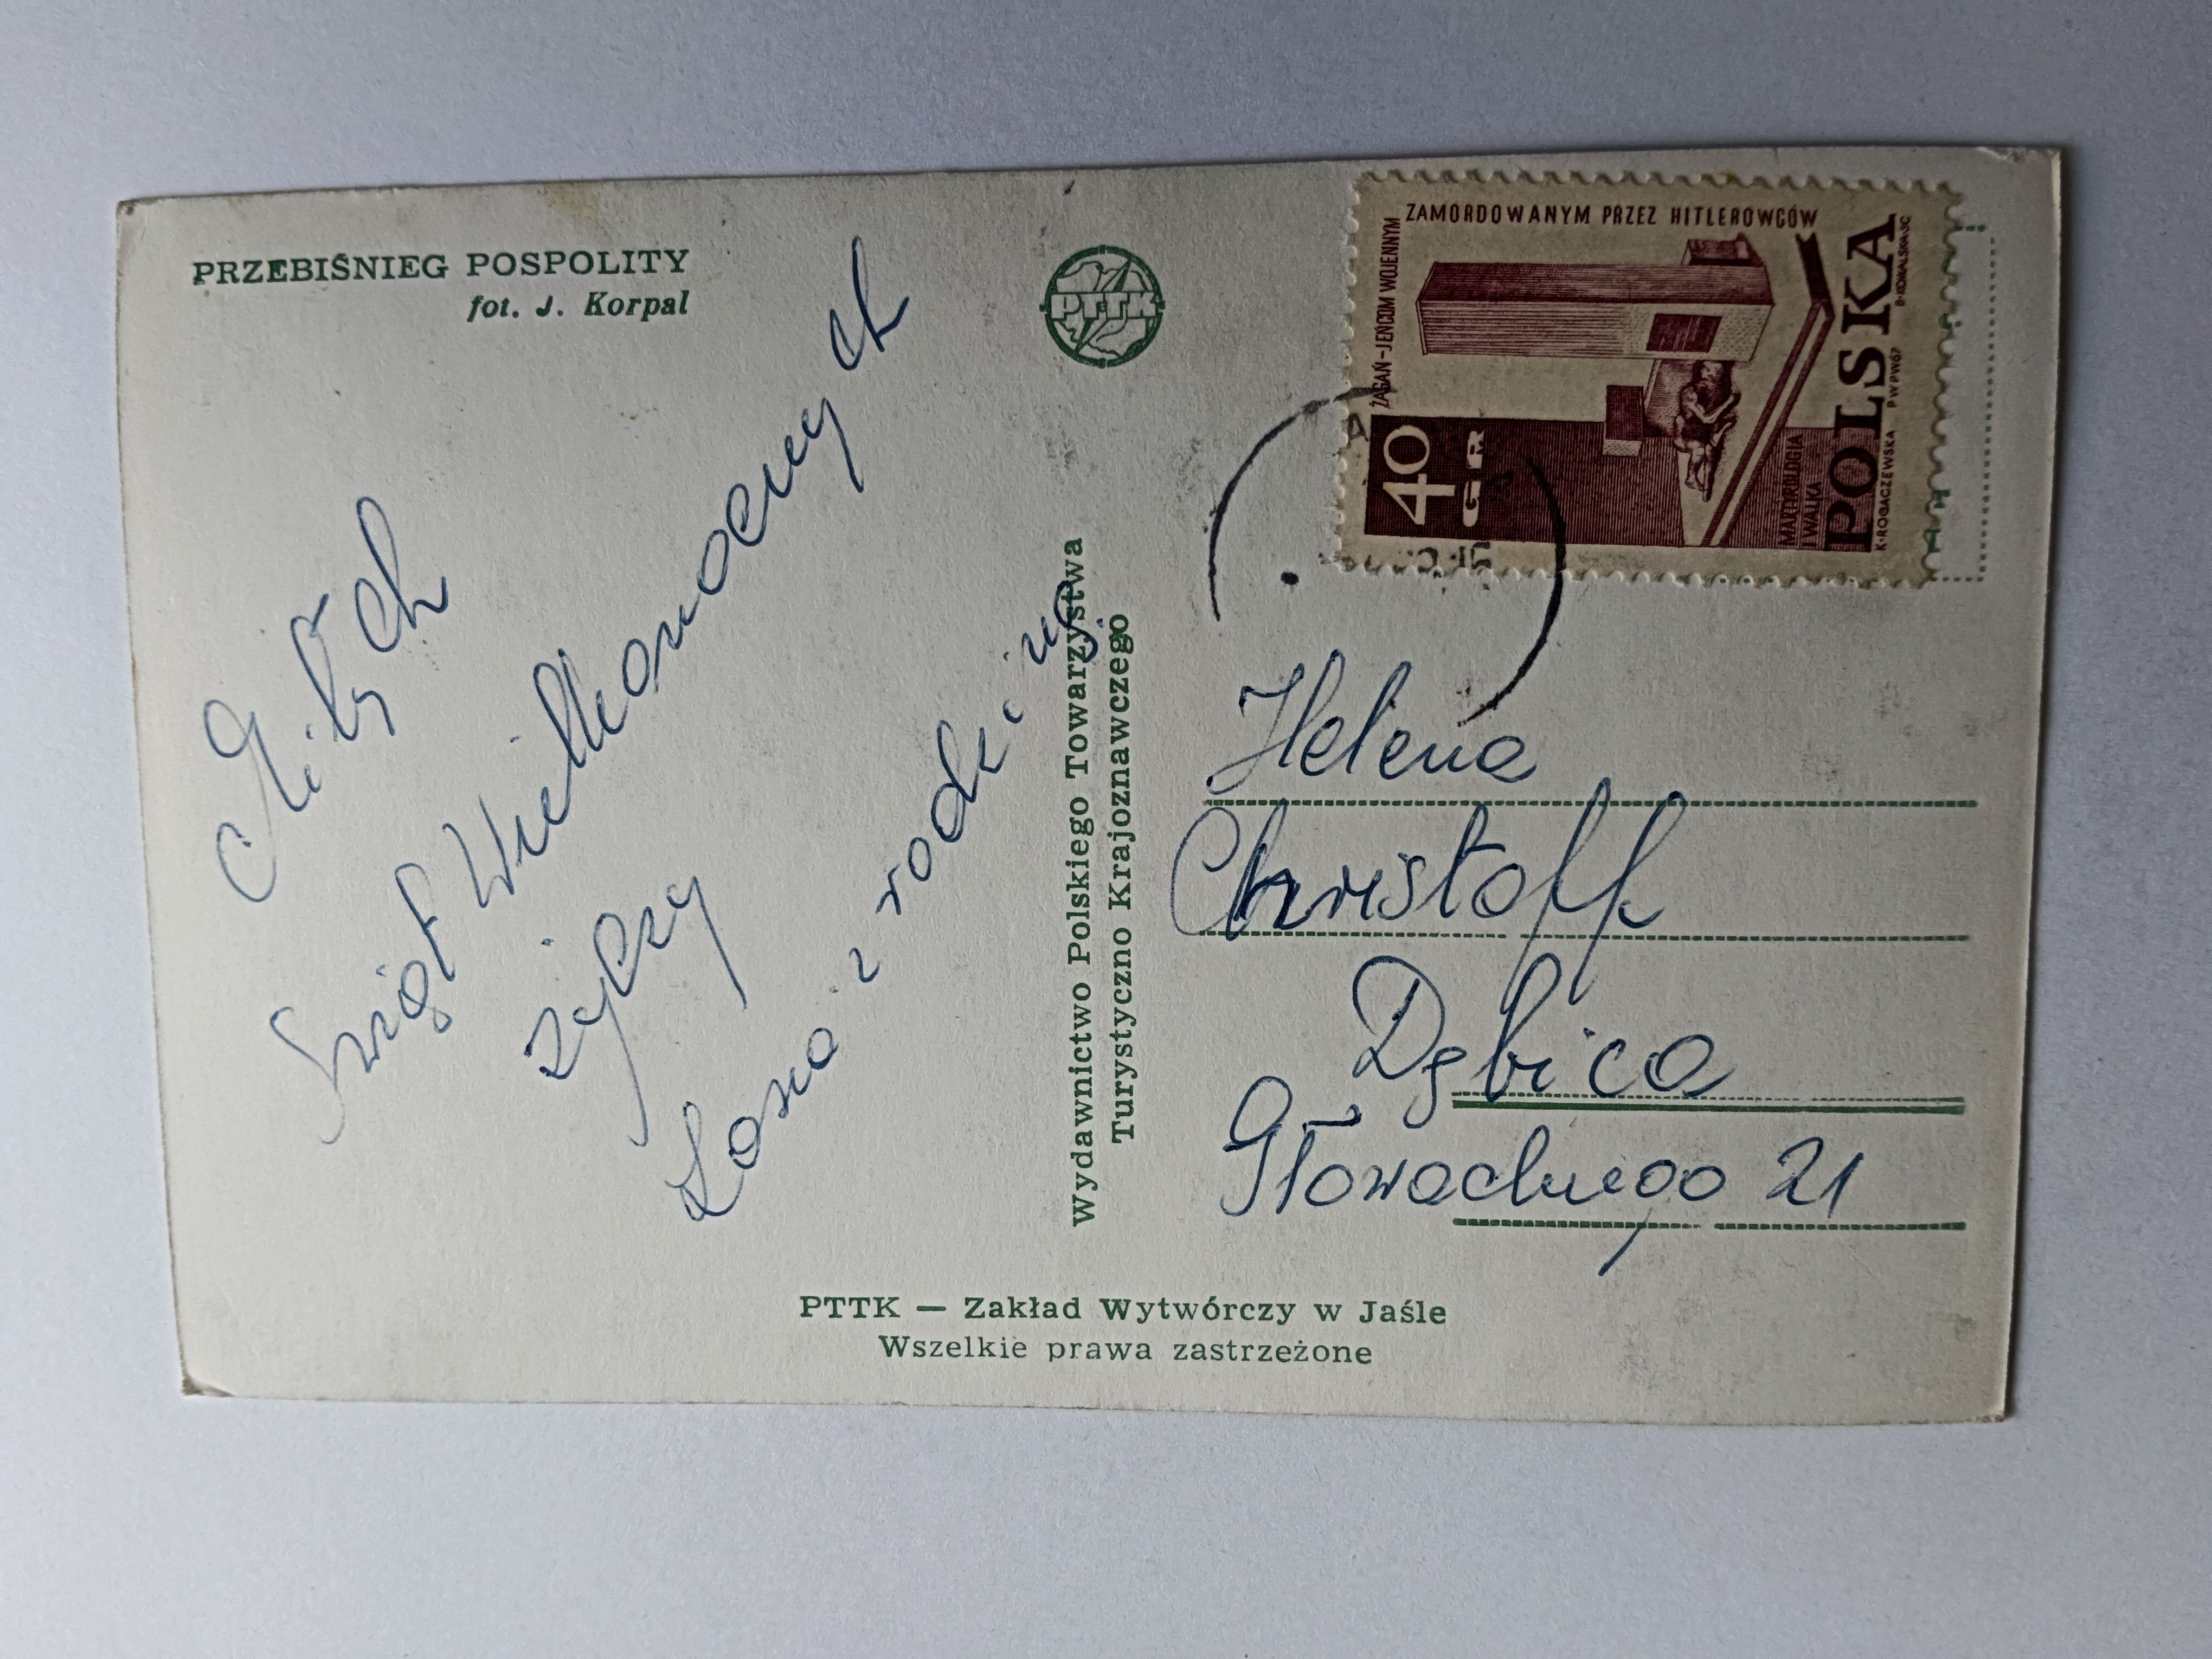 PRZEBIŚNIEG POSPOLITY
fot. J. Korpal
Miłych
Świąt Wielkanocnych
życzy
z rodziną
Wydawnictwo Polskiego Towarzystwa
Turystyczno Krajoznawczego
PTTK
ŻAGAŃ-JEŃCOM WOJENNYM
ZAMORDOWANYM PRZEZ HITLEROWCÓW
40
GR
MARTYROLOGIA
I WALKA
POLSKA
K·ROGACZEWSKA PWPW67 B·KOWALSKA·SC
Helena
Christoff
Dębica
Głowackiego 21
PTTK — Zakład Wytwórczy w Jaśle
Wszelkie prawa zastrzeżone